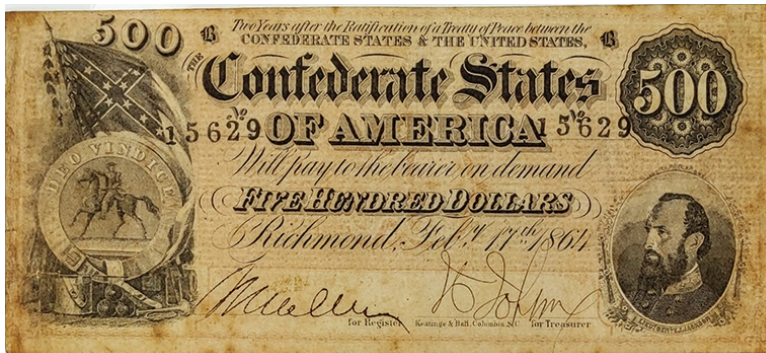 500
B Two Years after the Ratification of a Treaty of Peace between the B
CONFEDERATE STATES & THE UNITED STATES,
THE
Confederate States
500
No 15629 OF AMERICA No 15629
Will pay to the bearer on demand
FIVE HUNDRED DOLLARS
Richmond, Feby. 17th 1864
DEO VINDICE
for Register Keatinge & Ball, Columbia, S.C. for Treasurer